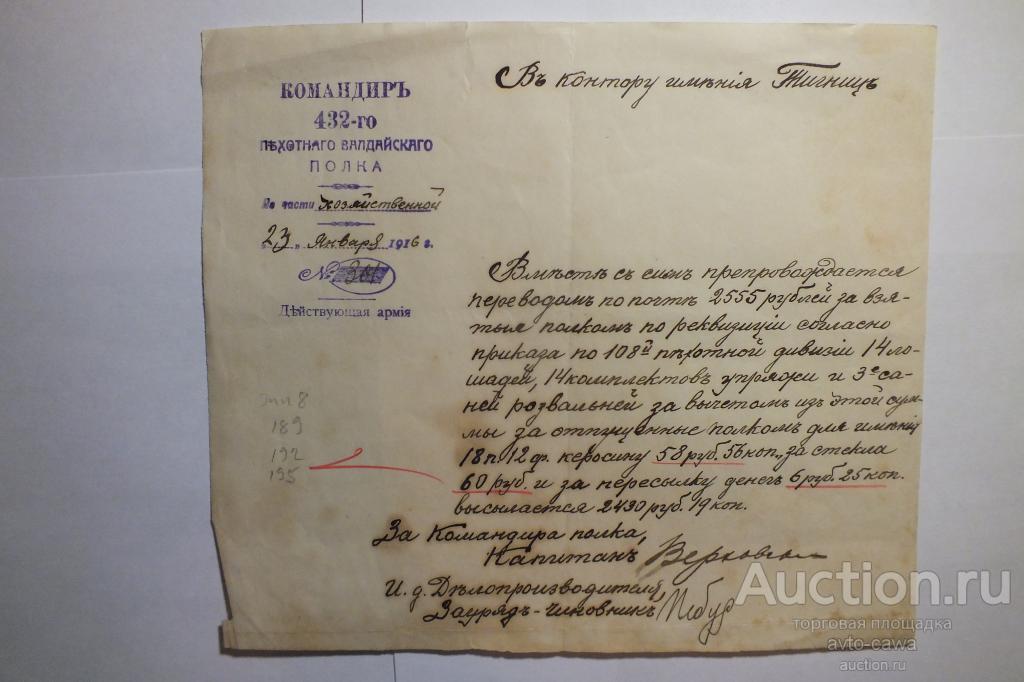 КОМАНДИРЪ
432-го
ПѢХОТНАГО ВАЛДАЙСКАГО
ПОЛКА
По части хозяйственной
„23„ Января 1916 г.
№ 301
Дѣйствующая армія
Въ контору имѣнія Тигницъ
Вмѣстѣ съ симъ препровождается
переводомъ по почтѣ 2555 рублей за взя-
тыя полкомъ по реквизиціи согласно
приказа по 108й пѣхотной дивизіи 14 ло-
шадей, 14 комплектовъ упряжи и 3хъ са-
ней розвальней за вычетомъ изъ этой сум-
мы за отпущенные полкомъ для имѣнія
18 п. 12 ф. керосину 58 руб. 56 коп., за стекла
60 руб. и за пересылку денегъ 6 руб. 25 коп.
высылается 2430 руб. 19 коп.
За Командира полка,
Капитанъ
И. д. Дѣлопроизводителя,
Заурядъ-чиновникъ
189
192
195
Auction.ru
торговая площадка
avto-cawa
auction.ru